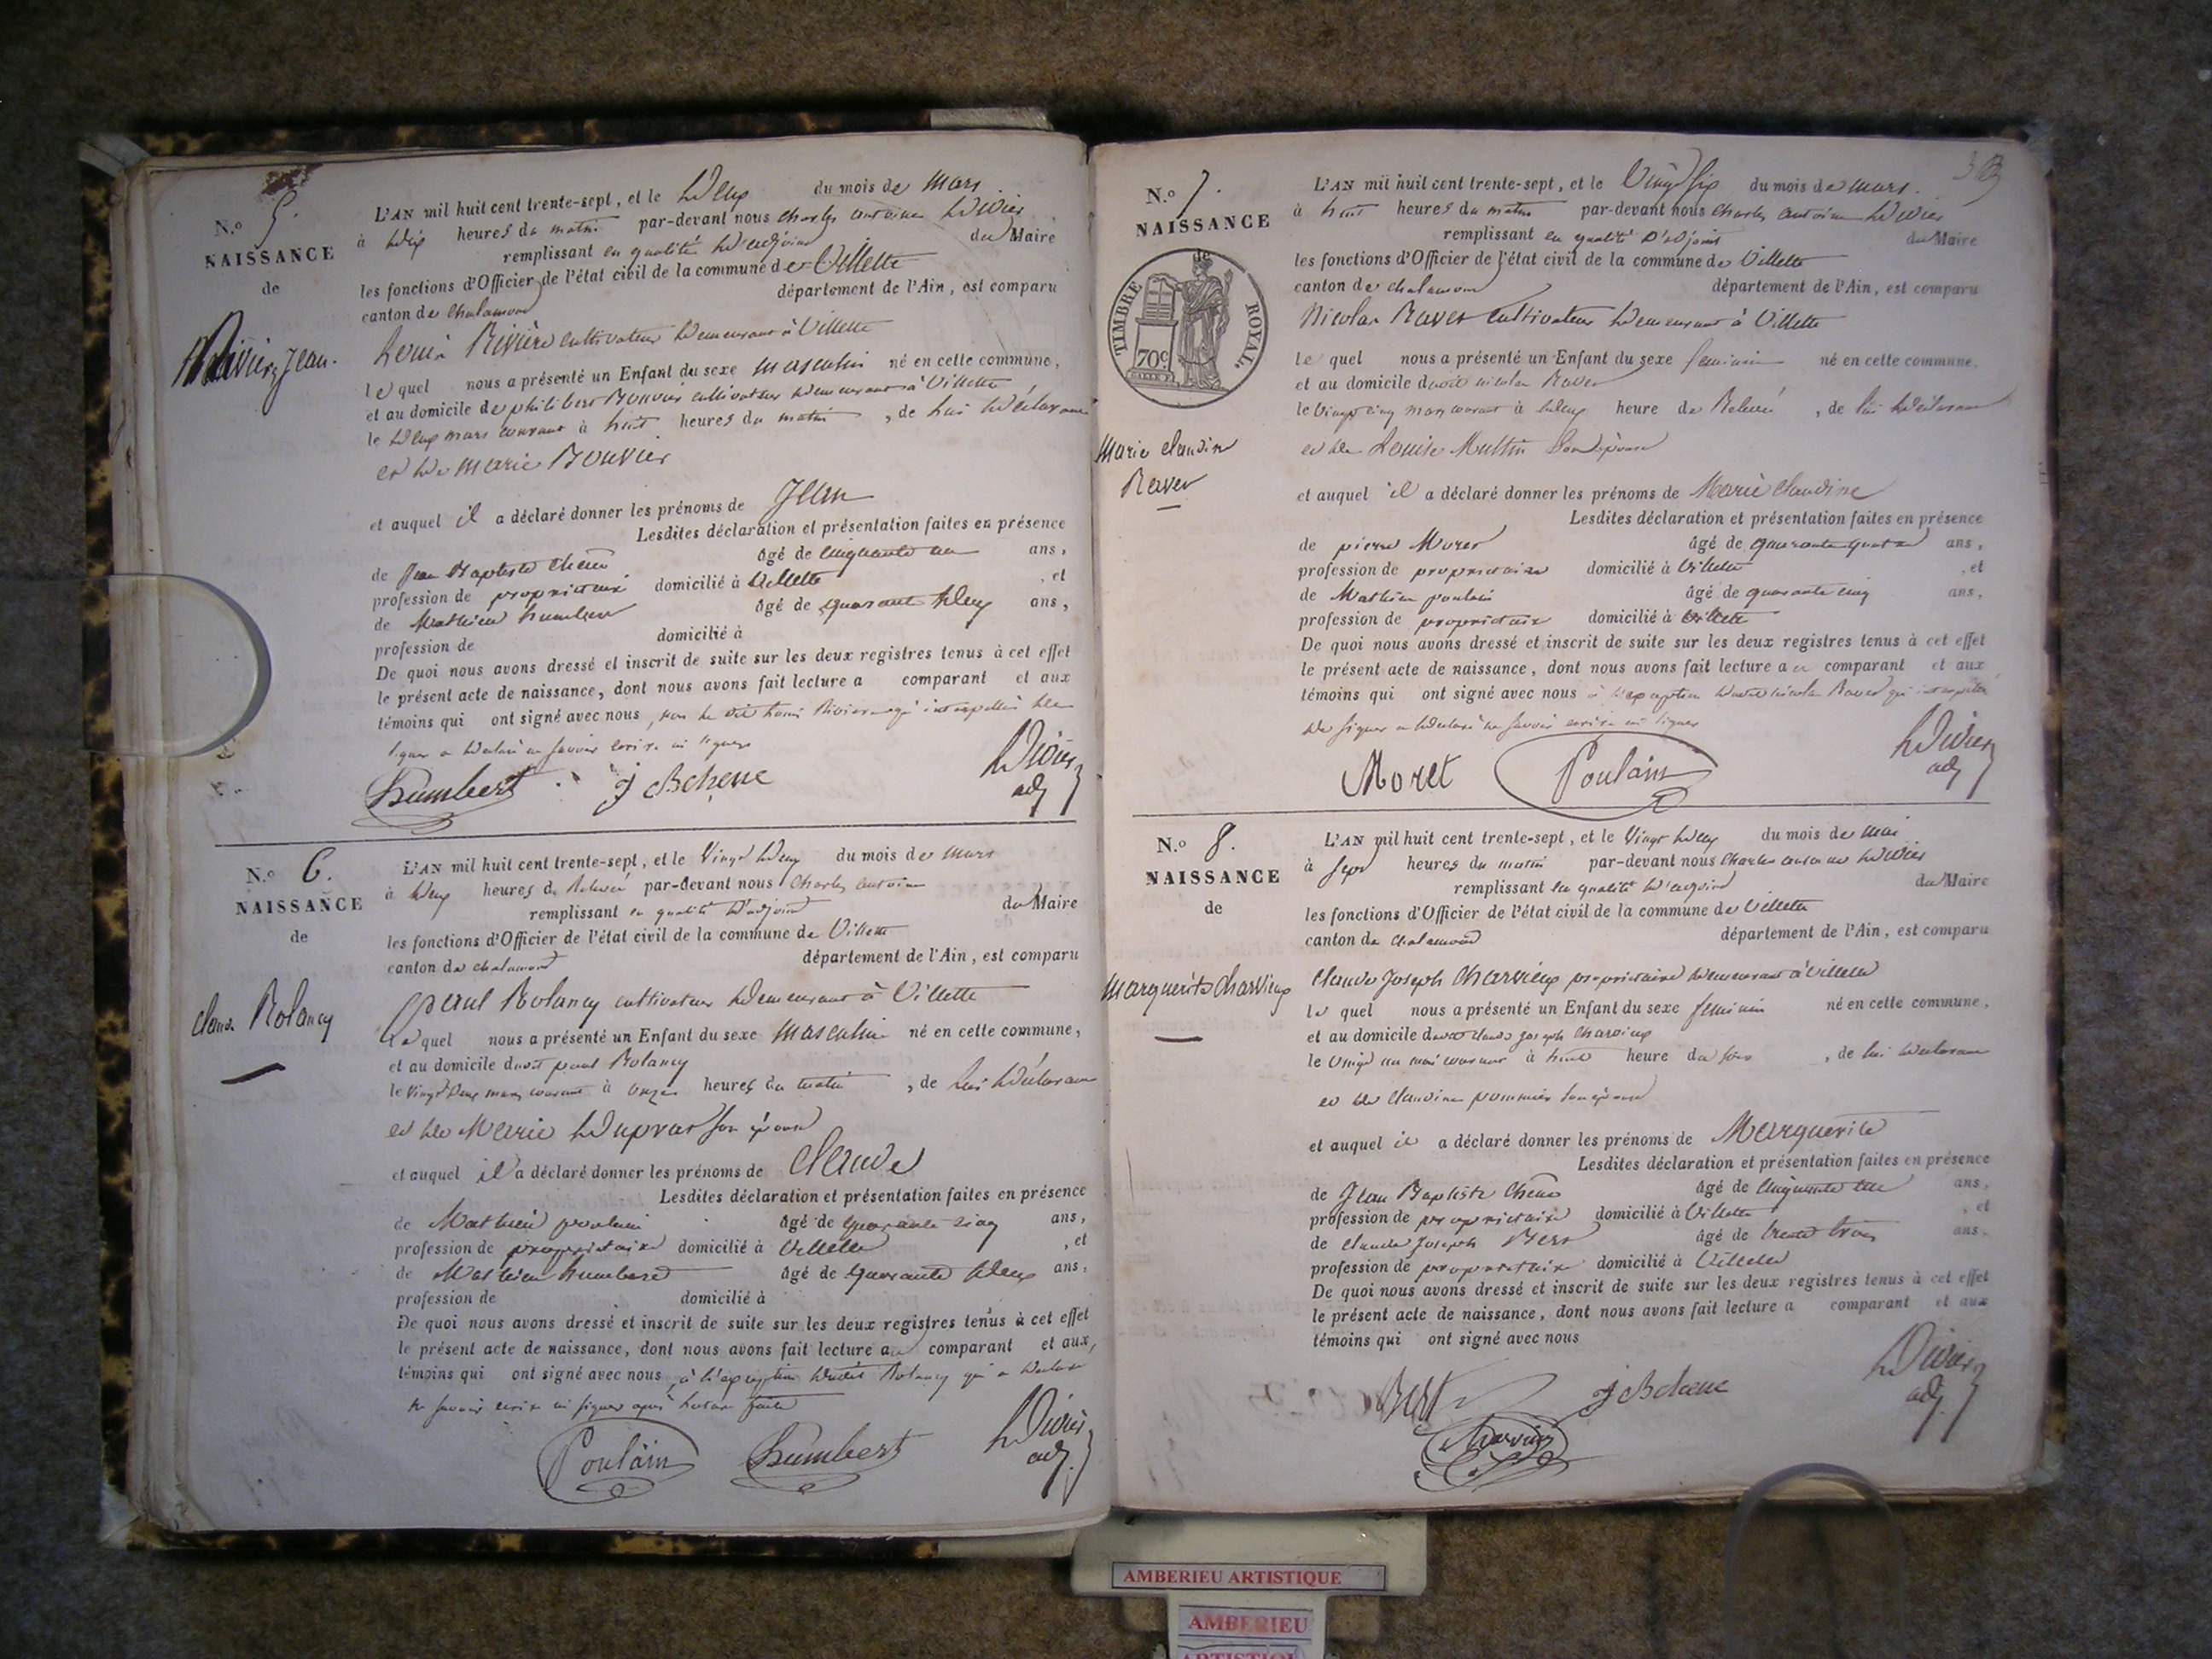 N.o 5.
NAISSANCE
de
Rivier Jean.
L'AN mil huit cent trente-sept, et le deux du mois de mars
à dix heures du matin par-devant nous charles antoine didier
remplissant en qualité d'adjoint du Maire
les fonctions d'Officier de l'état civil de la commune de Villette
canton de chalamont département de l'Ain, est comparu
Louis Rivière cultivateur demeurant à Villette
le quel nous a présenté un Enfant du sexe masculin né en cette commune,
et au domicile de philibert Bouvier cultivateur demeurant à Villette
le deux mars courant à huit heures du matin, de lui déclarant
et de marie Bouvier
et auquel il a déclaré donner les prénoms de Jean
Lesdites déclaration et présentation faites en présence
de Jean Baptiste Chene âgé de cinquante un ans,
profession de propriétaire domicilié à Villette, et
de Mathieu humbert âgé de quarante deux ans,
profession de domicilié à
De quoi nous avons dressé et inscrit de suite sur les deux registres tenus à cet effet
le présent acte de naissance, dont nous avons fait lecture a comparant et aux
témoins qui ont signé avec nous, non le dit Louis Riviere qui interpellé de
signer a déclaré ne savoir écrire ni signer
Humbert J B chene didier adj
N.o 6.
NAISSANCE
de
claude Rolancy
L'AN mil huit cent trente-sept, et le Vingt deux du mois de mars
à deux heures de Relevé par-devant nous Charles antoine
remplissant en qualité d'adjoint du Maire
les fonctions d'Officier de l'état civil de la commune de Villette
canton de chalamont département de l'Ain, est comparu
paul Rolancy cultivateur demeurant à Villette
le quel nous a présenté un Enfant du sexe masculin né en cette commune,
et au domicile dudit paul Rolancy
le vingt deux mars courant à onze heures du matin, de lui déclarant
et de Marie duprat son épouse
et auquel il a déclaré donner les prénoms de claude
Lesdites déclaration et présentation faites en présence
de Mathieu poulain âgé de quarante cinq ans,
profession de propriétaire domicilié à Villette, et
de Mathieu humbert âgé de quarante deux ans,
profession de domicilié à
De quoi nous avons dressé et inscrit de suite sur les deux registres tenus à cet effet
le présent acte de naissance, dont nous avons fait lecture au comparant et aux
témoins qui ont signé avec nous à l'exception dudit Rolancy qui a déclaré
ne savoir écrire ni signer après lecture faite
Poulain Humbert didier adj.
N.o 7.
NAISSANCE
de
TIMBRE ROYAL.
70c
Marie claudine
Raver
L'AN mil huit cent trente-sept, et le Vingt six du mois de mars.
à huit heures du matin par-devant nous charles antoine didier
remplissant en qualité d'adjoint du Maire
les fonctions d'Officier de l'état civil de la commune de Villette
canton de chalamont département de l'Ain, est comparu
Nicolas Raver cultivateur demeurant à Villette
le quel nous a présenté un Enfant du sexe feminin né en cette commune.
et au domicile dudit nicolas Raver
le vingt cinq mars courant à deux heure de Relevé, de lui déclarant
et de Louise Multin son épouse
et auquel il a déclaré donner les prénoms de Marie claudine
Lesdites déclaration et présentation faites en présence
de pierre Moret âgé de quarante quatre ans,
profession de propriétaire domicilié à Villette, et
de Mathieu poulain âgé de quarante cinq ans,
profession de propriétaire domicilié à Villette
De quoi nous avons dressé et inscrit de suite sur les deux registres tenus à cet effet
le présent acte de naissance, dont nous avons fait lecture au comparant et aux
témoins qui ont signé avec nous à l'exception dudit nicolas Raver qui interpellé
de signer a déclaré ne savoir écrire ni signer
Moret Poulain didier adj
N.o 8.
NAISSANCE
de
marguerite charvieux
L'AN mil huit cent trente-sept, et le Vingt deux du mois de mai
à sept heures du matin par-devant nous Charles antoine didier
remplissant en qualité d'adjoint du Maire
les fonctions d'Officier de l'état civil de la commune de Villette
canton de chalamont département de l'Ain, est comparu
claude Joseph Charvieux propriétaire demeurant à Villette
le quel nous a présenté un Enfant du sexe feminin né en cette commune.
et au domicile dudit claude joseph charvieux
le vingt un mai courant à huit heure du soir, de lui déclarant
et de claudine pommier son épouse
et auquel il a déclaré donner les prénoms de Marguerite
Lesdites déclaration et présentation faites en présence
de Jean Baptiste Chene âgé de cinquante un ans,
profession de propriétaire domicilié à Villette, et
de claude Joseph Bert âgé de trente trois ans.
profession de propriétaire domicilié à Villette
De quoi nous avons dressé et inscrit de suite sur les deux registres tenus à cet effet
le présent acte de naissance, dont nous avons fait lecture a comparant et aux
témoins qui ont signé avec nous
Bert J B chene didier adj.
Charvieux
AMBERIEU ARTISTIQUE
AMBERIEU
ARTISTIQUE